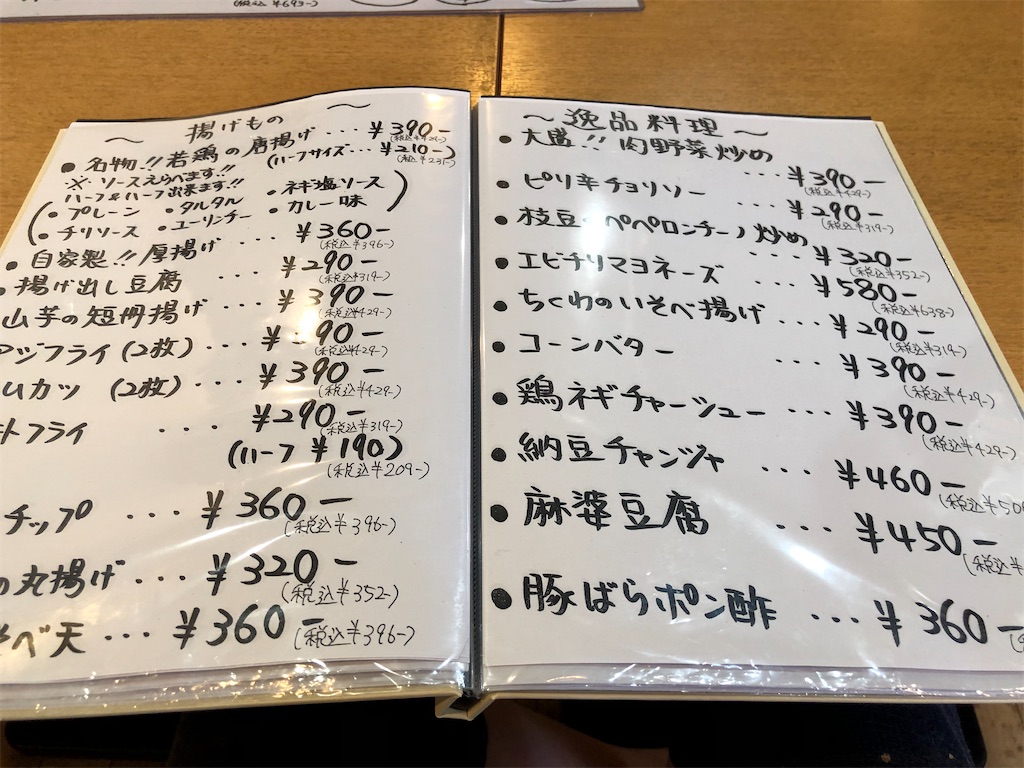 (税込¥693-)
～ 揚げもの ～
● 名物!!若鶏の唐揚げ ... ¥390-
(税込¥429-)
※ ソースえらべます!! (ハーフサイズ... ¥210-
(税込¥231-)
ハーフ&ハーフ出来ます!!
・プレーン ・タルタル ・ネギ塩ソース
・チリソース ・ユーリンチー ・カレー味
● 自家製!!厚揚げ ... ¥360-
(税込¥396-)
・揚げ出し豆腐 .... ¥290-
(税込¥319-)
山芋の短冊揚げ ... ¥390-
(税込¥429-)
アジフライ(2枚) ... 90-
(税込¥429-)
ムカツ (2枚) ... ¥390-
(税込¥429-)
トフライ .... ¥290-
(税込¥319-)
(ハーフ ¥190)
(税込¥209-)
チップ ... ¥360-
(税込¥396-)
の丸揚げ ... ¥320-
(税込¥352-)
そべ天 ... ¥360-
(税込¥396-)
～ 逸品料理 ～
● 大盛!! 肉野菜炒め
... ¥390-
(税込¥429-)
● ピリ辛チョリソー
... ¥290-
(税込¥319-)
● 枝豆のペペロンチーノ炒め
... ¥320-
(税込¥352-)
● エビチリマヨネーズ
... ¥580-
(税込¥638-)
● ちくわのいそべ揚げ
... ¥290-
(税込¥319-)
● コーンバター
... ¥390-
(税込¥429-)
● 鶏ネギチャーシュー ... ¥390-
(税込¥429-)
● 納豆チャンジャ .... ¥460-
(税込¥50
● 麻婆豆腐 .... ¥450-
(税込¥
● 豚ばらポン酢 ... ¥360-